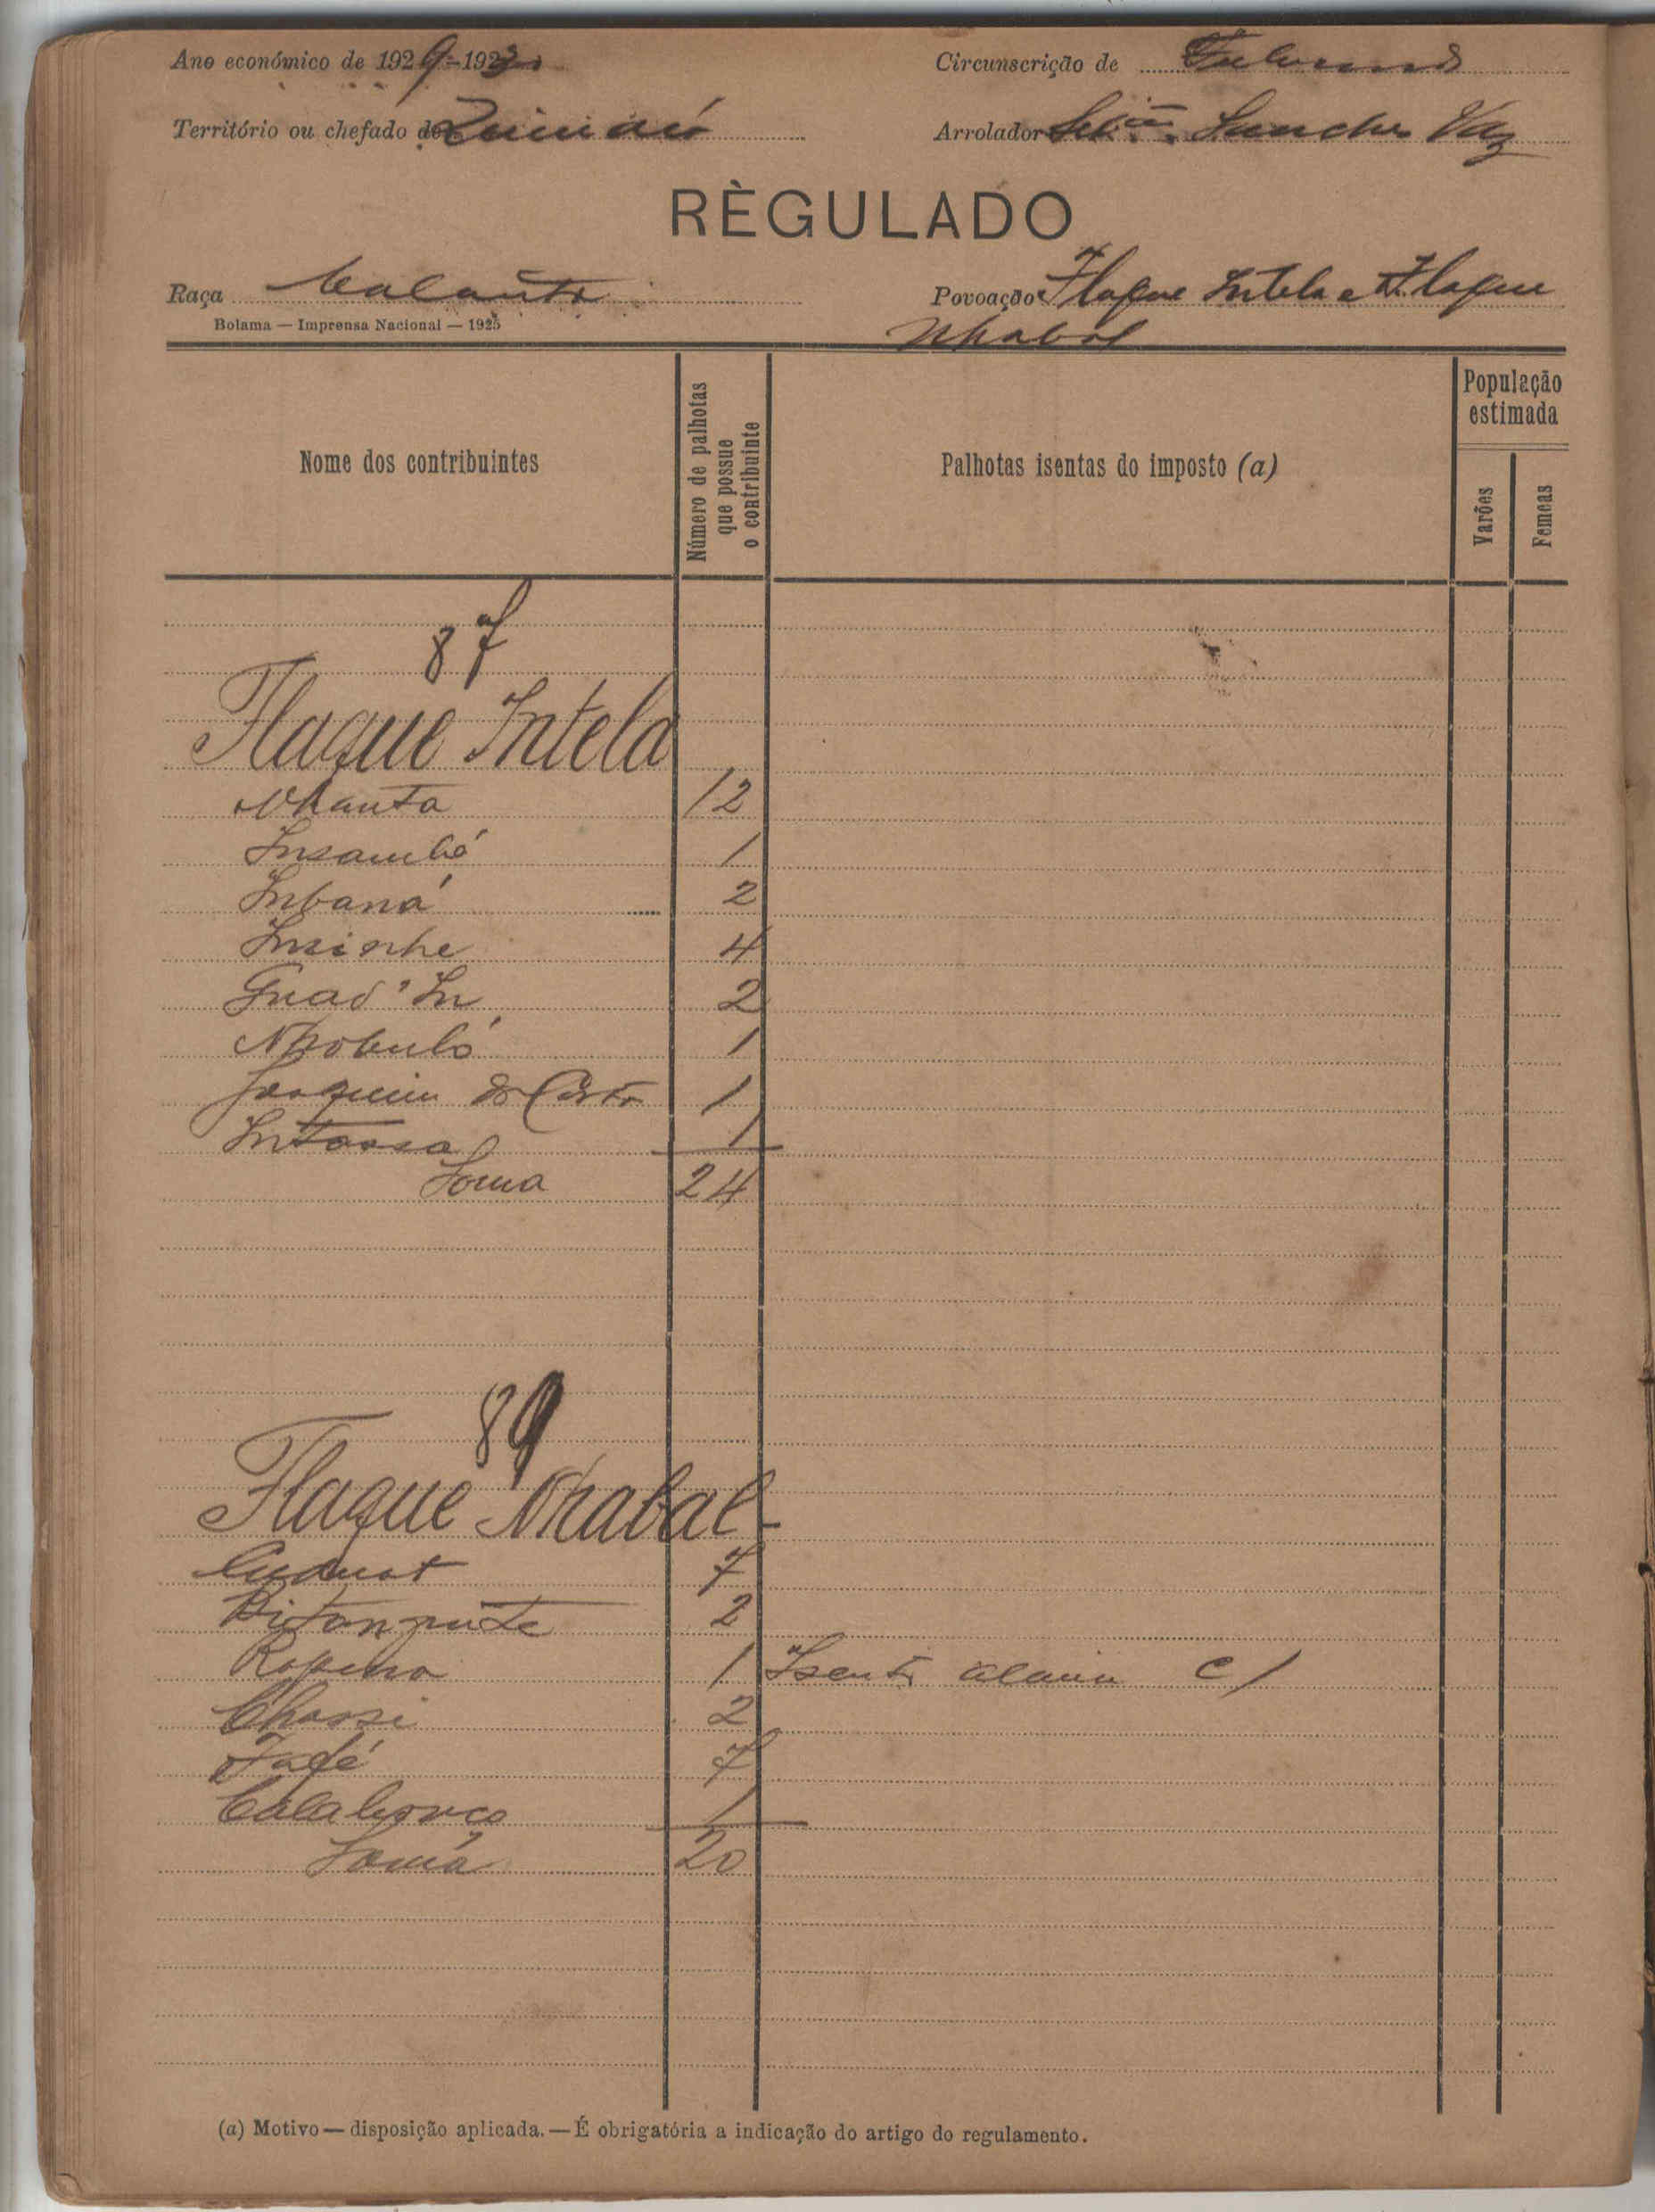 Ano económico de 1929-1930 Circunscrição de
Território ou chefado de Arrolador Sanches Vaz
RÈGULADO
Raça Balanta Povoação Flaque Intela e Flaque
Nhabal
Bolama — Imprensa Nacional — 1925
Nome dos contribuintes
Número de palhotas que possue o contribuinte
Palhotas isentas do imposto (a)
População estimada
Varões
Femeas
87
Flaque Intela
Nhanta 12
Insambé 1
Inbaná 2
Insinhe 4
Guad' In 2
1
Joaquim da Costa 1
1
Soma 24
89
Flaque Nhabal
7
2
1
Chassi 2
Fafé 7
1
Soma 20
(a) Motivo — disposição aplicada. — É obrigatória a indicação do artigo do regulamento.